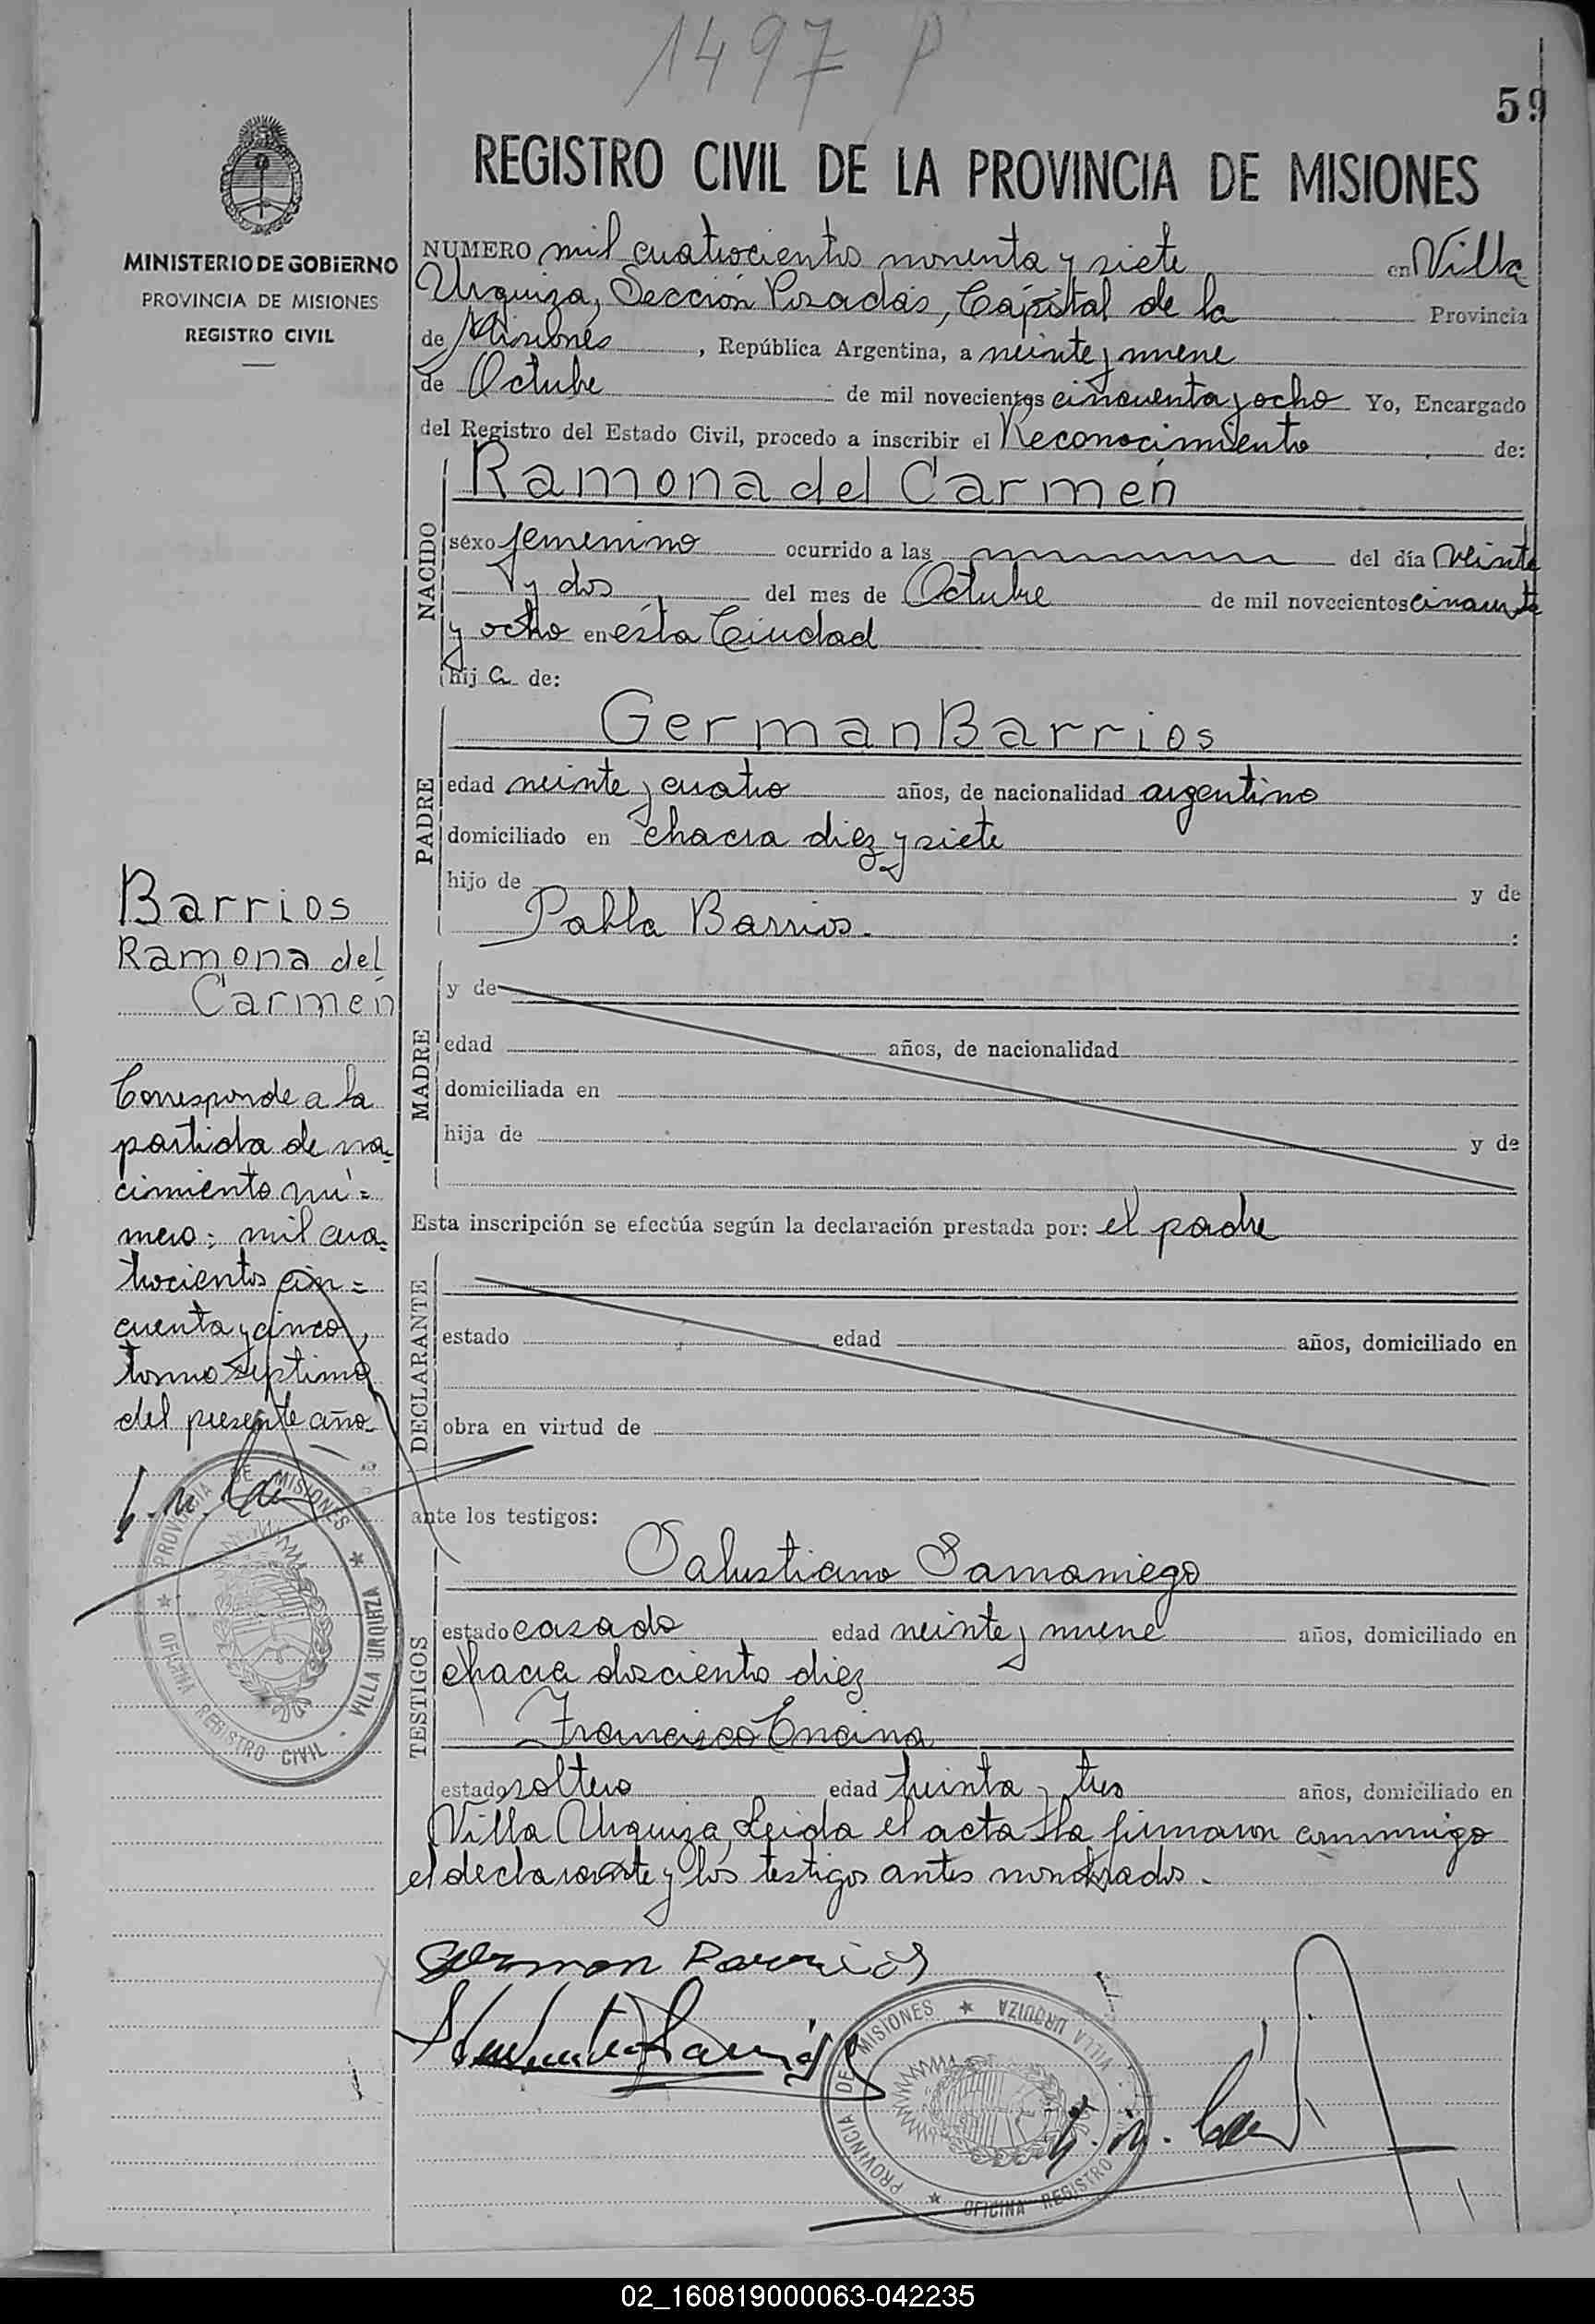 1497 P
59
REGISTRO CIVIL DE LA PROVINCIA DE MISIONES
MINISTERIO DE GOBIERNO
PROVINCIA DE MISIONES
REGISTRO CIVIL
NUMERO mil cuatrocientos noventa y siete en Villa
Urquiza, Sección Posadas, Capital de la Provincia
de Misiones, República Argentina, a veinte y nueve
de Octubre de mil novecientos cincuenta y ocho Yo, Encargado
del Registro del Estado Civil, procedo a inscribir el Reconocimiento de:
NACIDO
Ramona del Carmen
sexo femenino ocurrido a las del día veinte
y dos del mes de Octubre de mil novecientos cincuenta
y ocho en esta Ciudad
hija de:
PADRE
German Barrios
edad veinte y cuatro años, de nacionalidad argentino
domiciliado en chacra diez y siete
hijo de y de
Pabla Barrios.
MADRE
y de
edad años, de nacionalidad
domiciliada en
hija de y de
Esta inscripción se efectúa según la declaración prestada por: el padre
DECLARANTE
estado edad años, domiciliado en
obra en virtud de
ante los testigos:
TESTIGOS
Salustiano Samaniego
estado casado edad veinte y nueve años, domiciliado en
chacra dosciento diez
Francisco Encina
estado soltero edad treinta y tres años, domiciliado en
Villa Urquiza, Leida el acta la firmaron conmigo
el declarante y los testigos antes nombrados.
German Barrios
PROVINCIA DE MISIONES ★ VILLA URQUIZA
★ OFICINA REGISTRO
Barrios
Ramona del
Carmen
Corresponde a la
partida de na=
cimiento nú=
mero: mil cua=
trocientos cin=
cuenta y cinco,
tomo septimo
del presente año
PROVINCIA DE MISIONES ★ VILLA URQUIZA
★ OFICINA REGISTRO CIVIL
02_160819000063-042235